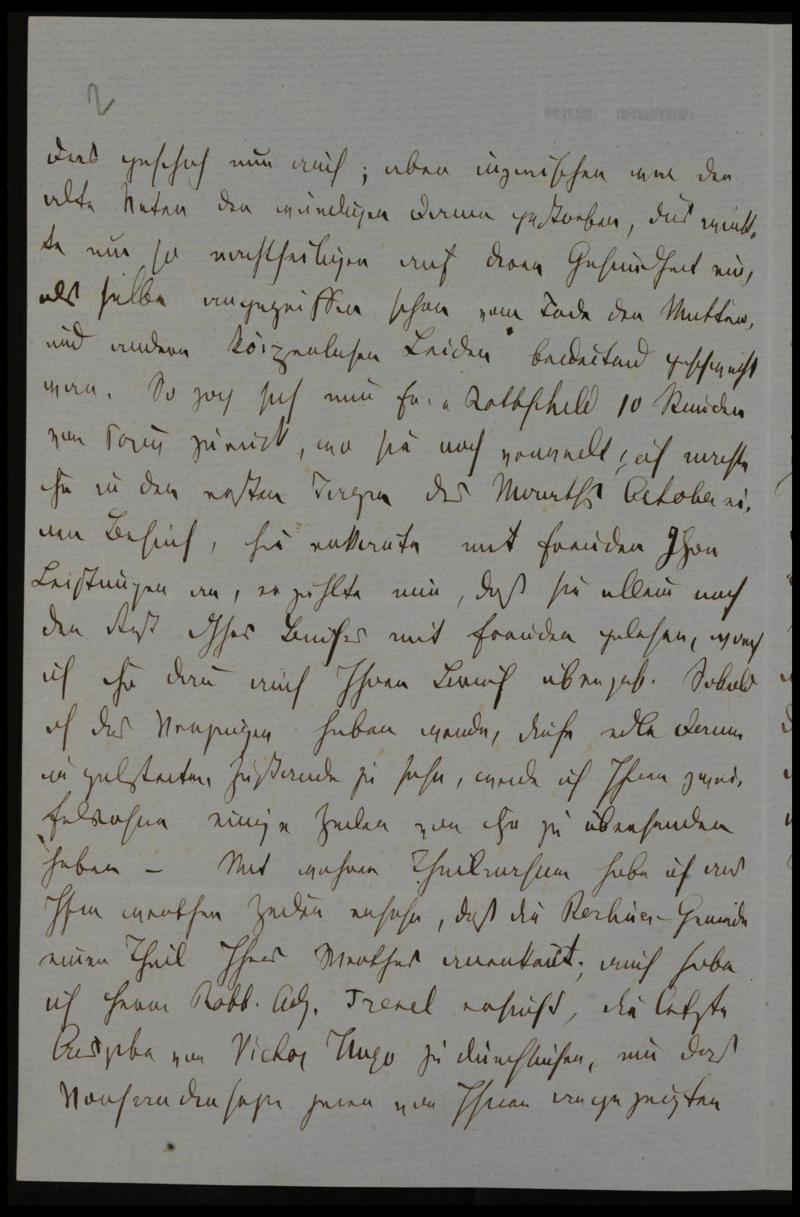 2
dies geschah nun auch; aber inzwischen war der
alte Vater der würdigen Dame gestorben, dies wirk-
te nun so nachtheiligen auf deren Gesundheit ein,
als selbe angegriffen schon vom Tode der Mutter,
und andern körperlichen Leiden bedeutend geschwächt
war. So zog sich nun Fr. v Rothschild 10 Stunden
von Paris zurück, wo sie noch verweilt; ich machte
ihr in den ersten Tagen des Monaths October ei-
nen Besuch, sie erkannte mit Freuden Ihre
Leistungen an, erzählte mir, daß sie allein nach
den Rest Ihres Buches mit Freuden gelesen, worauf
ich ihr dann auch Ihren Brief übergab. Sobald
ich das Vergnügen haben werde, diese edle Dame
in getröstetem Zustande zu sehn, werde ich Ihnen zwei-
felsohne einige Zeilen von ihr zu übersenden
haben — Mit wahrer Theilnahme habe ich aus
Ihren werthen Zeilen ersehn, daß die Berliner-Gemeinde
einen Theil Ihres Werthes anerkant; auch habe
ich Herrn Rabb. Adj. Trenel ersucht, die letzte
Ausgabe von Victor Hugo zu durchlaufen, um das
Vorhandensein jener von Ihnen angezeigten